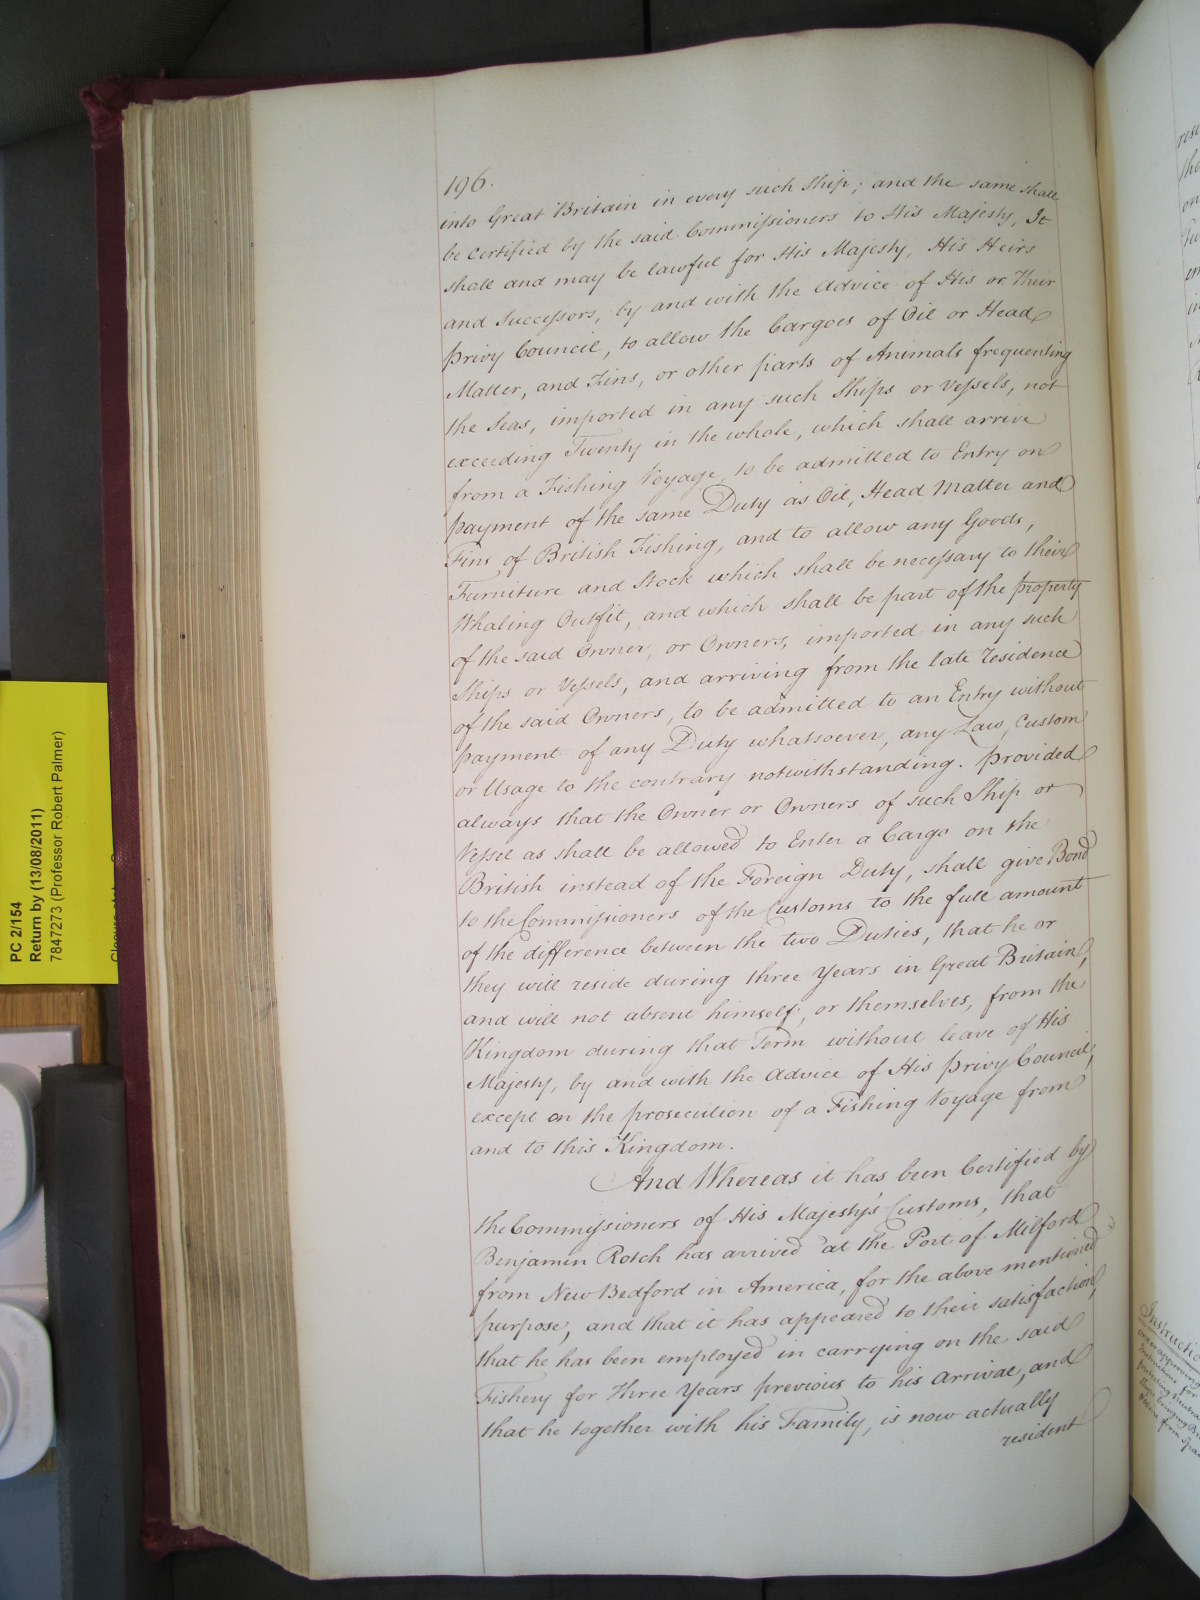 196.
into Great Britain in every such Ship; and the same shall
be certified by the said Commissioners to His Majesty, It
shall and may be lawful for His Majesty, His Heirs
and Successors, by and with the Advice of His or Their
Privy Council, to allow the Cargoes of Oil or Head
Matter, and Fins, or other parts of Animals frequenting
the Seas, imported in any such Ships or Vessels, not
exceeding Twenty in the whole, which shall arrive
from a Fishing Voyage, to be admitted to Entry on
payment of the same Duty as Oil, Head Matter and
Fins of British Fishing, and to allow any Goods,
Furniture and Stock which shall be necessary to their
Whaling Outfit, and which shall be part of the property
of the said Owner, or Owners, imported in any such
Ships or Vessels, and arriving from the late residence
of the said Owners, to be admitted to an Entry without
payment of any Duty whatsoever, any Law, Custom
or Usage to the contrary notwithstanding. Provided
always that the Owner or Owners of such Ship or
Vessel as shall be allowed to Enter a Cargo on the
British instead of the Foreign Duty, shall give Bond
to the Commissioners of the Customs to the full amount
of the difference between the two Duties, that he or
they will reside during three Years in Great Britain,
and will not absent himself, or themselves, from the
Kingdom during that Term without leave of His
Majesty, by and with the Advice of His Privy Council,
except on the prosecution of a Fishing Voyage from
and to this Kingdom.
And Whereas it has been Certified by
the Commissioners of His Majesty's Customs, that
Benjamin Rotch has arrived at the Port of Milford
from New Bedford in America, for the above mentioned
purpose, and that it has appeared to their satisfaction,
that he has been employed in carrying on the said
Fishery for three Years previous to his arrival, and
that he together with his Family, is now actually
resident
PC 2/154
Return by (13/08/2011)
7847273 (Professor Robert Palmer)